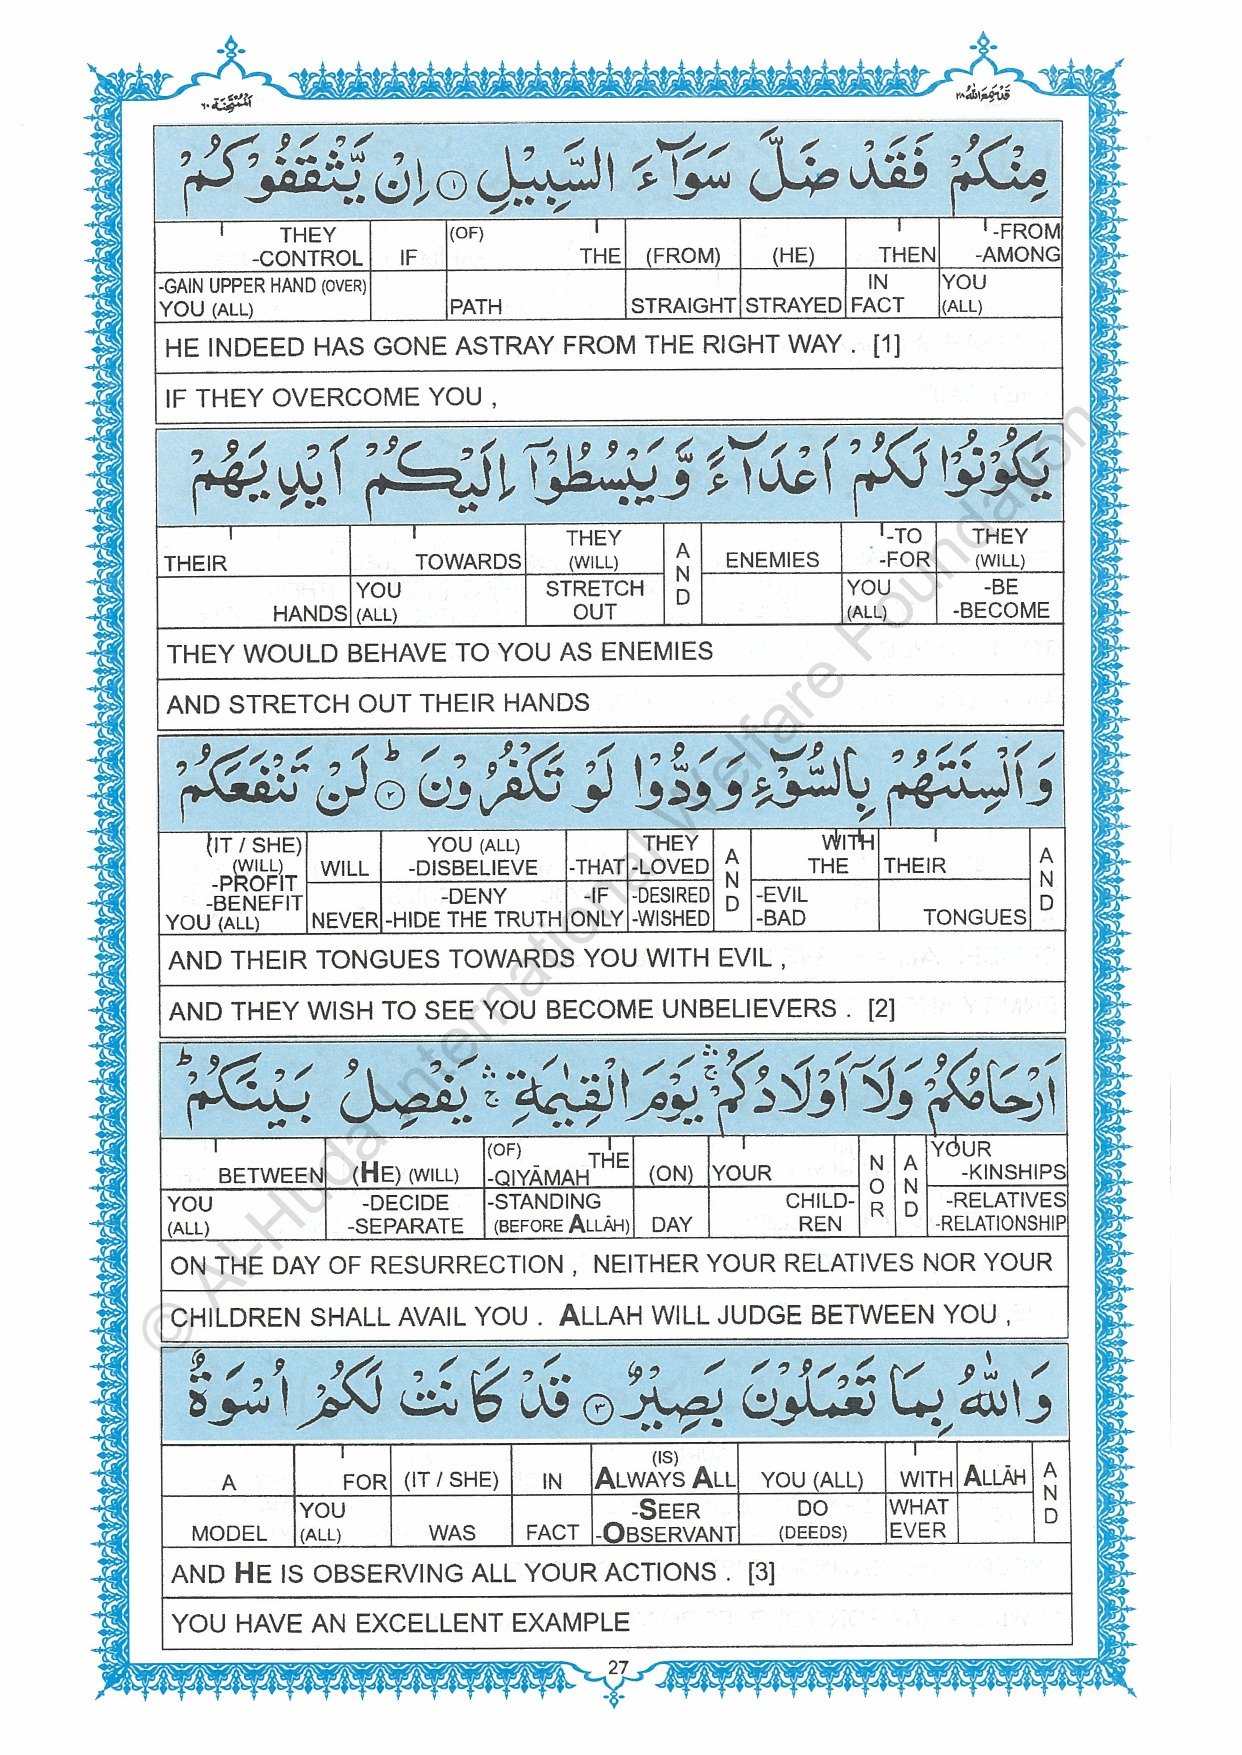 الممتحنة ٦٠
قد سمع الله ٢٨
مِنْكُمْ فَقَدْ ضَلَّ سَوَآءَ السَّبِيْلِ ١ اِنْ يَّثْقَفُوْكُمْ
THEY -CONTROL IF (OF) THE (FROM) (HE) THEN -FROM -AMONG
-GAIN UPPER HAND (OVER) YOU (ALL) PATH STRAIGHT STRAYED IN FACT YOU (ALL)
HE INDEED HAS GONE ASTRAY FROM THE RIGHT WAY . [1]
IF THEY OVERCOME YOU ,
يَكُوْنُوْا لَكُمْ اَعْدَآءً وَّيَبْسُطُوْٓا اِلَيْكُمْ اَيْدِيَهُمْ
THEIR TOWARDS THEY (WILL) AND ENEMIES -TO -FOR THEY (WILL)
HANDS YOU (ALL) STRETCH OUT YOU (ALL) -BE -BECOME
THEY WOULD BEHAVE TO YOU AS ENEMIES
AND STRETCH OUT THEIR HANDS
وَاَلْسِنَتَهُمْ بِالسُّوْٓءِ وَوَدُّوْا لَوْ تَكْفُرُوْنَ ؕ ٢ لَنْ تَنْفَعَكُمْ
(IT / SHE) (WILL) -PROFIT WILL YOU (ALL) -DISBELIEVE -THAT THEY -LOVED AND WITH THE THEIR AND
-BENEFIT YOU (ALL) NEVER -DENY -HIDE THE TRUTH -IF ONLY -DESIRED -WISHED -EVIL -BAD TONGUES
AND THEIR TONGUES TOWARDS YOU WITH EVIL ,
AND THEY WISH TO SEE YOU BECOME UNBELIEVERS . [2]
اَرْحَامُكُمْ وَلَآ اَوْلَادُكُمْ ۛۚ يَوْمَ الْقِيٰمَةِ ۛۚ يَفْصِلُ بَيْنَكُمْ ؕ
BETWEEN (HE) (WILL) (OF) THE -QIYĀMAH (ON) YOUR NOR AND YOUR -KINSHIPS
YOU (ALL) -DECIDE -SEPARATE -STANDING (BEFORE ALLĀH) DAY CHILD- REN -RELATIVES -RELATIONSHIP
ON THE DAY OF RESURRECTION , NEITHER YOUR RELATIVES NOR YOUR
CHILDREN SHALL AVAIL YOU . ALLAH WILL JUDGE BETWEEN YOU ,
وَاللّٰهُ بِمَا تَعْمَلُوْنَ بَصِيْرٌ ٣ قَدْ كَانَتْ لَكُمْ اُسْوَةٌ
A FOR (IT / SHE) IN (IS) ALWAYS ALL YOU (ALL) WITH ALLĀH AND
MODEL YOU (ALL) WAS FACT -SEER -OBSERVANT DO (DEEDS) WHAT EVER
AND HE IS OBSERVING ALL YOUR ACTIONS . [3]
YOU HAVE AN EXCELLENT EXAMPLE
27
© AL-Huda International Welfare Foundation